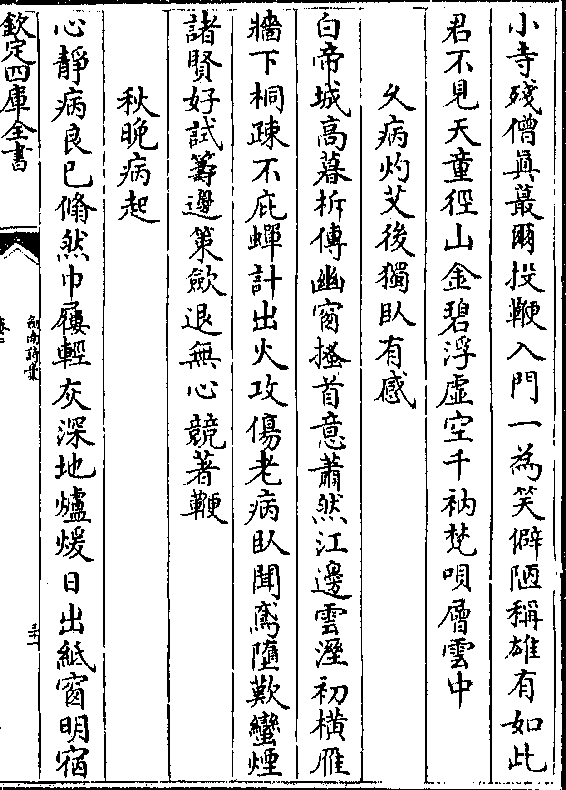 小寺殘僧眞蕞爾投鞭入門一為笑僻陋稱雄有如此
君不見天童徑山金碧浮虛空千衲梵唄層雲中
久病灼艾後獨臥有感
白帝城高暮柝傳幽窗搔首意蕭然江邊雲溼初横雁
牆下桐疎不庇蟬計出火攻傷老病臥聞鳶墮歎蠻煙
諸賢好試籌邊策歛退無心競著鞭
秋晚病起
心靜病良已翛然巾屨輕灰深地爐煖日出紙窗明宿
欽定四庫全書
劍南詩藁